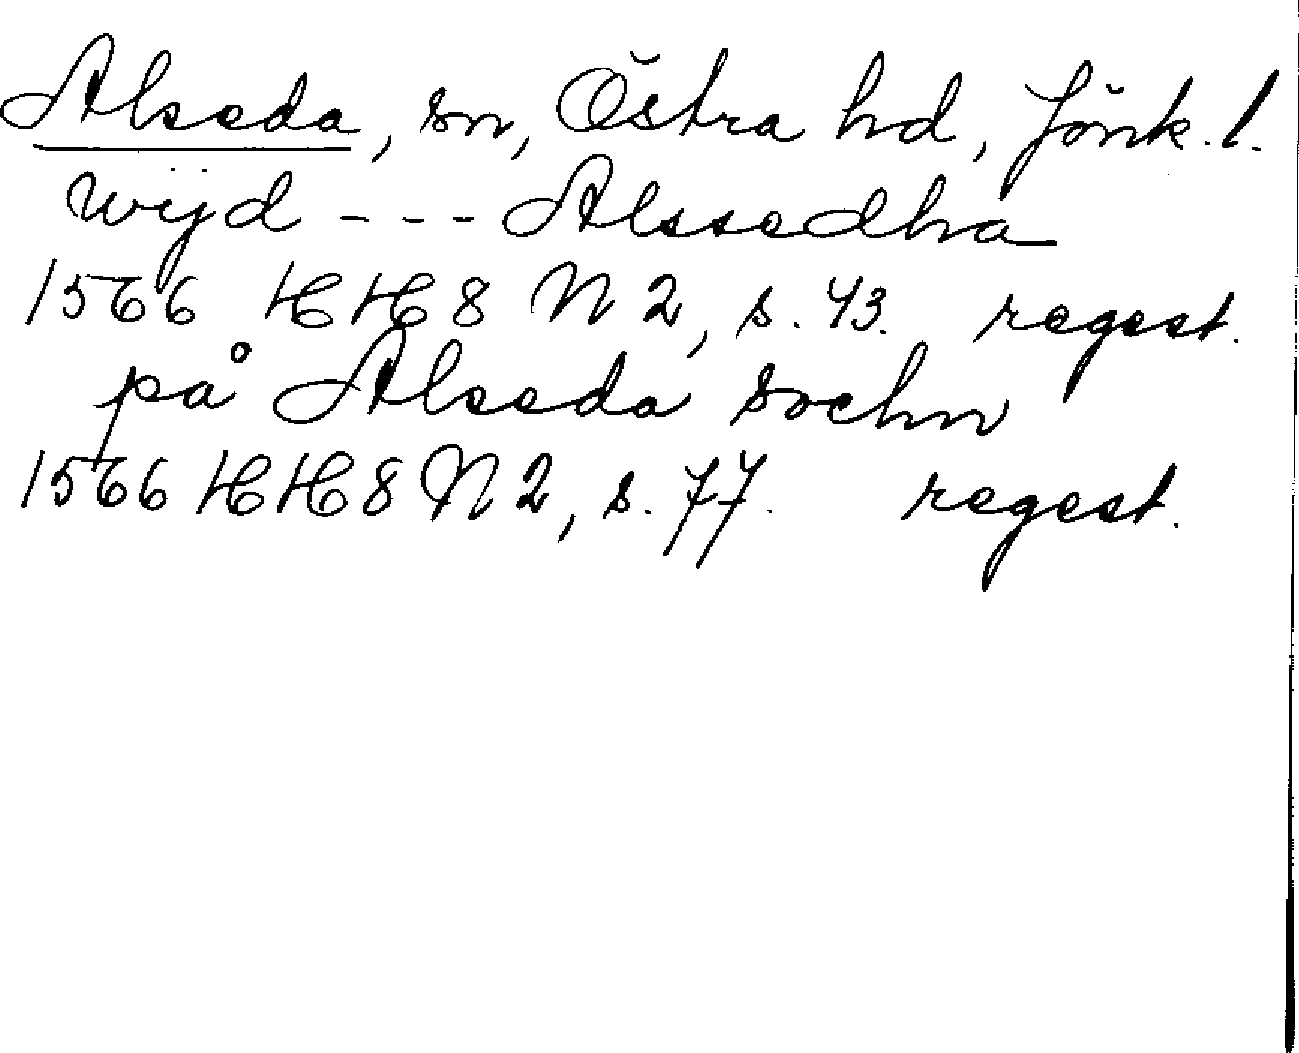 Alseda, sn, Östra hd, Jönk. l.
wijd - - - Alssedha
1566 HH 8 N 2, s. 43. regest.
på Alseda sochn
1566 HH 8 N 2, s. 77. regest.